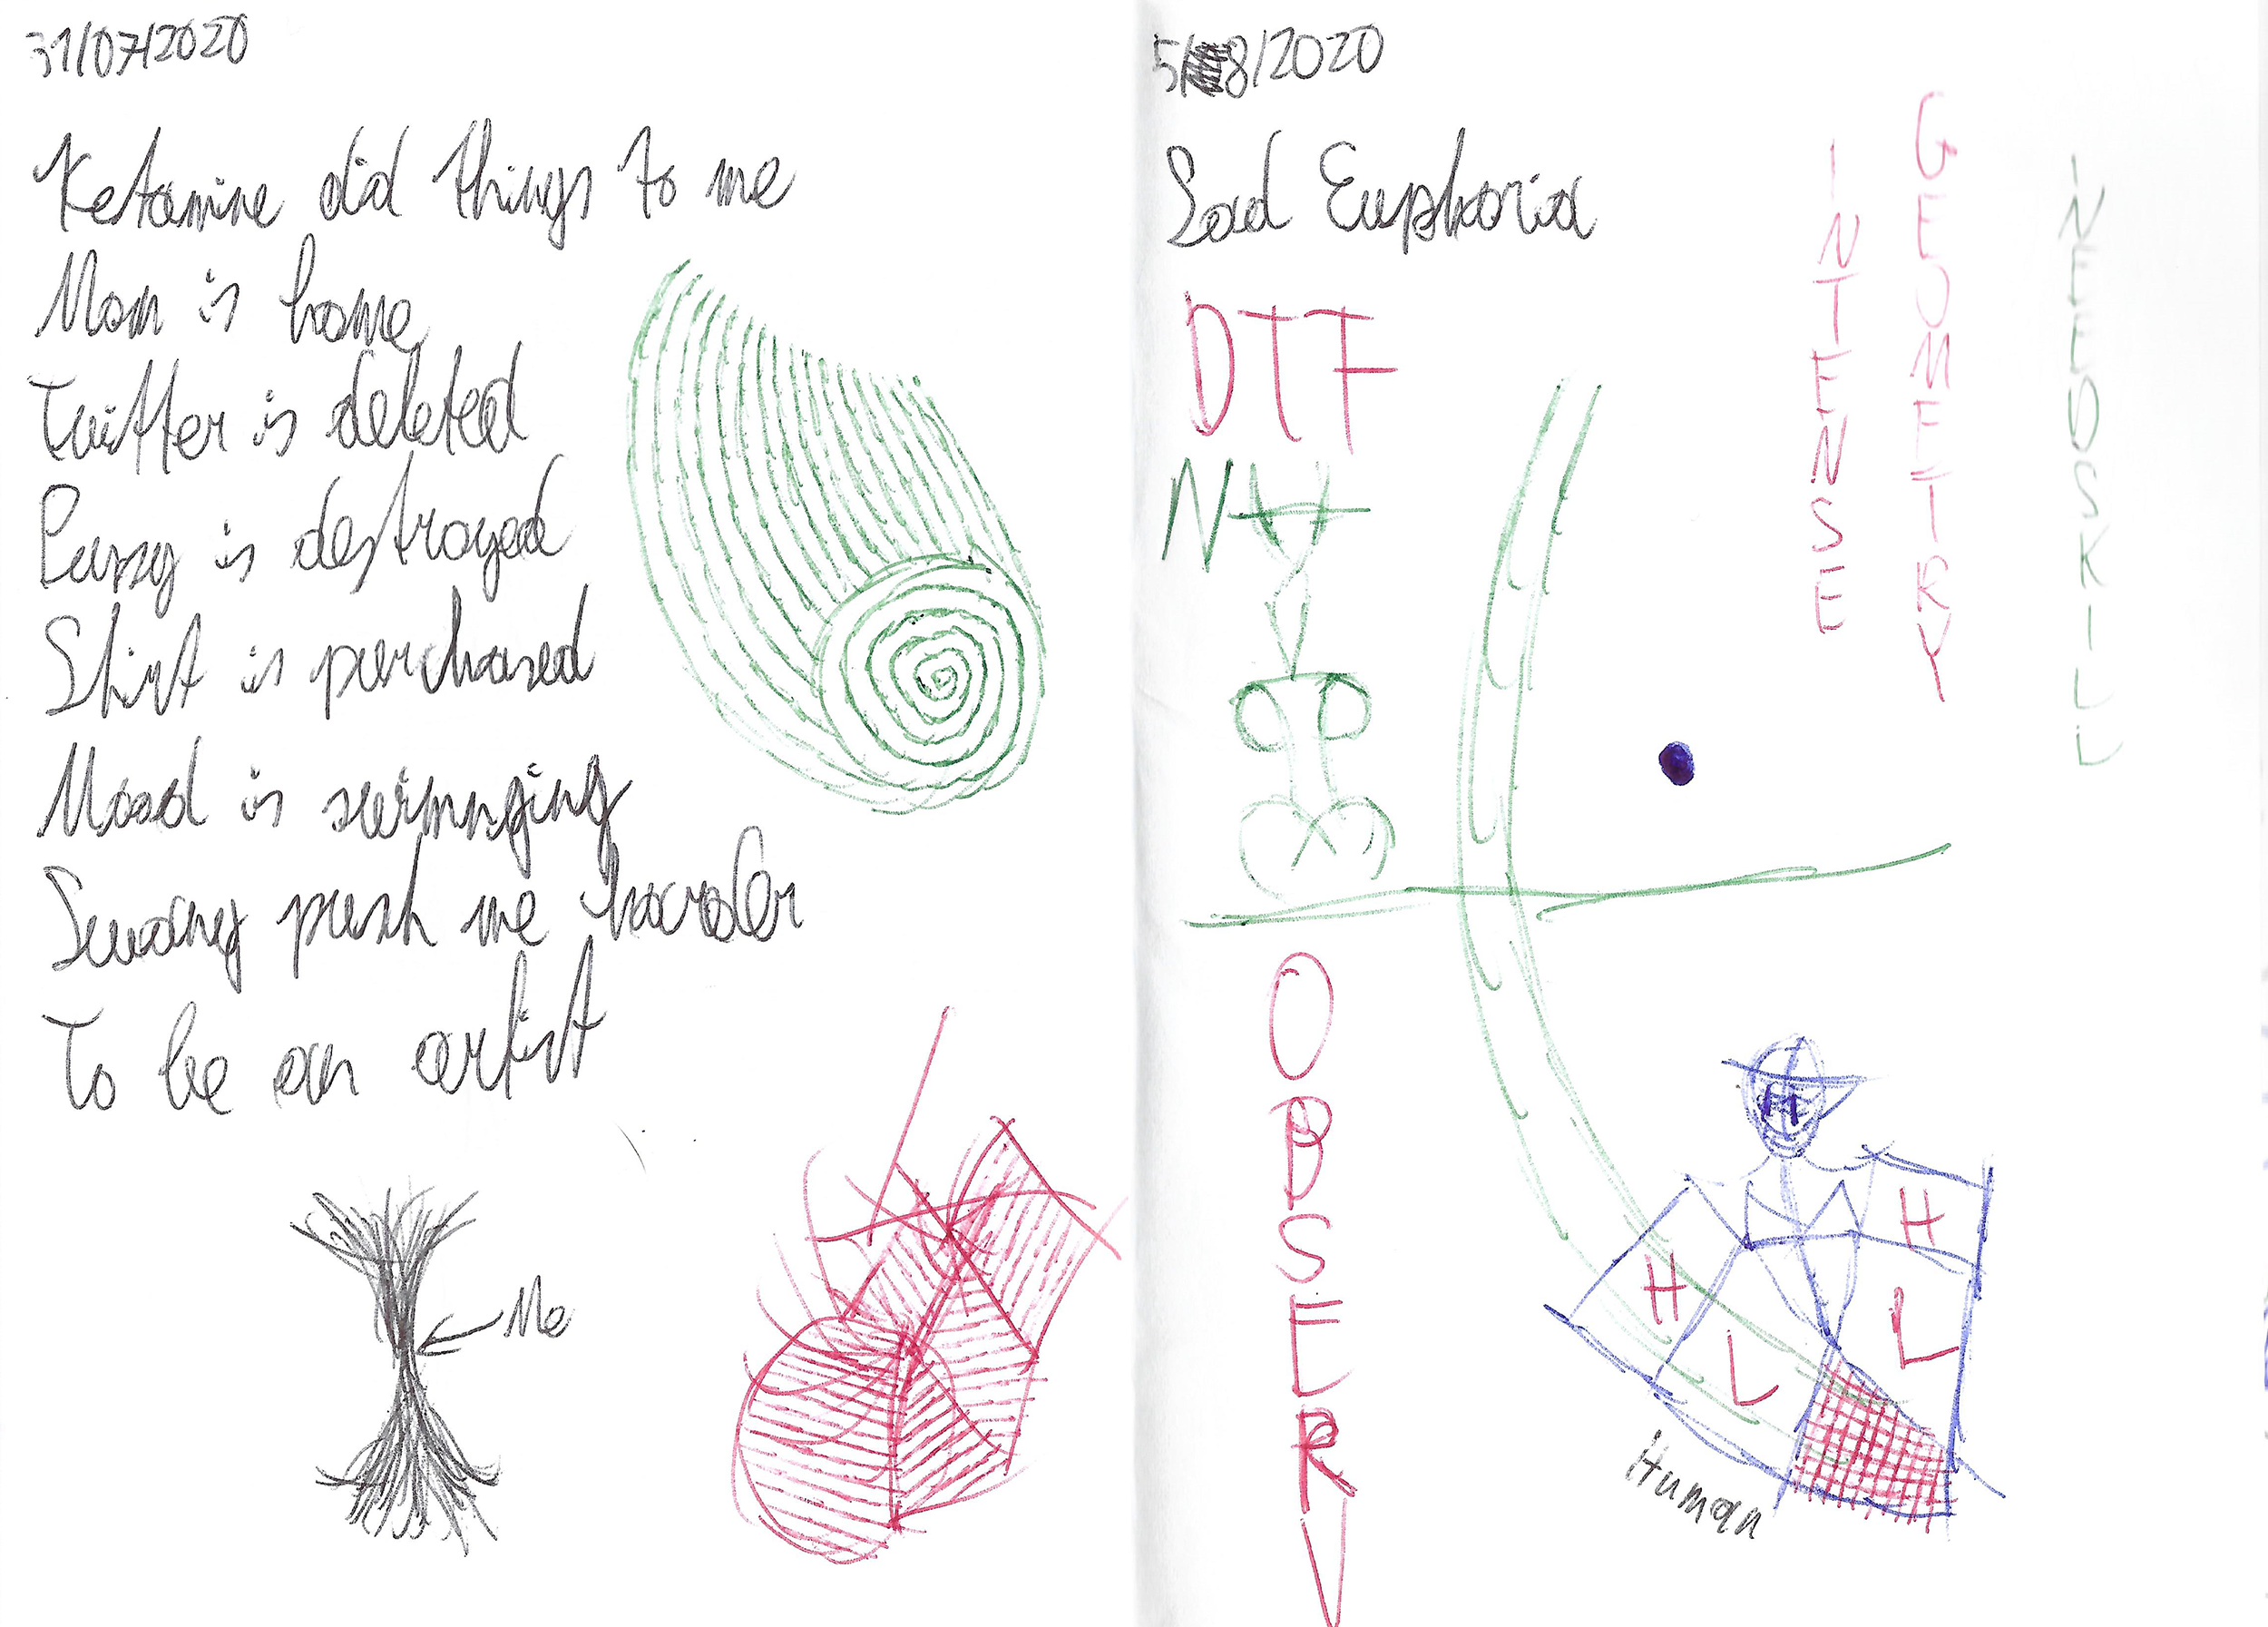 31/07/2020
Ketamine did things to me
Mom is home
Twitter is deleted
Pussy is destroyed
Shirt is purchased
Mood is swinging
Swang push me harder
To be an artist
Me
5/8/2020
Sad Euphoria
DTF
OBSERV
INTENSE
GEOMETRY
INEEDSKILL
H
H
L
L
Human